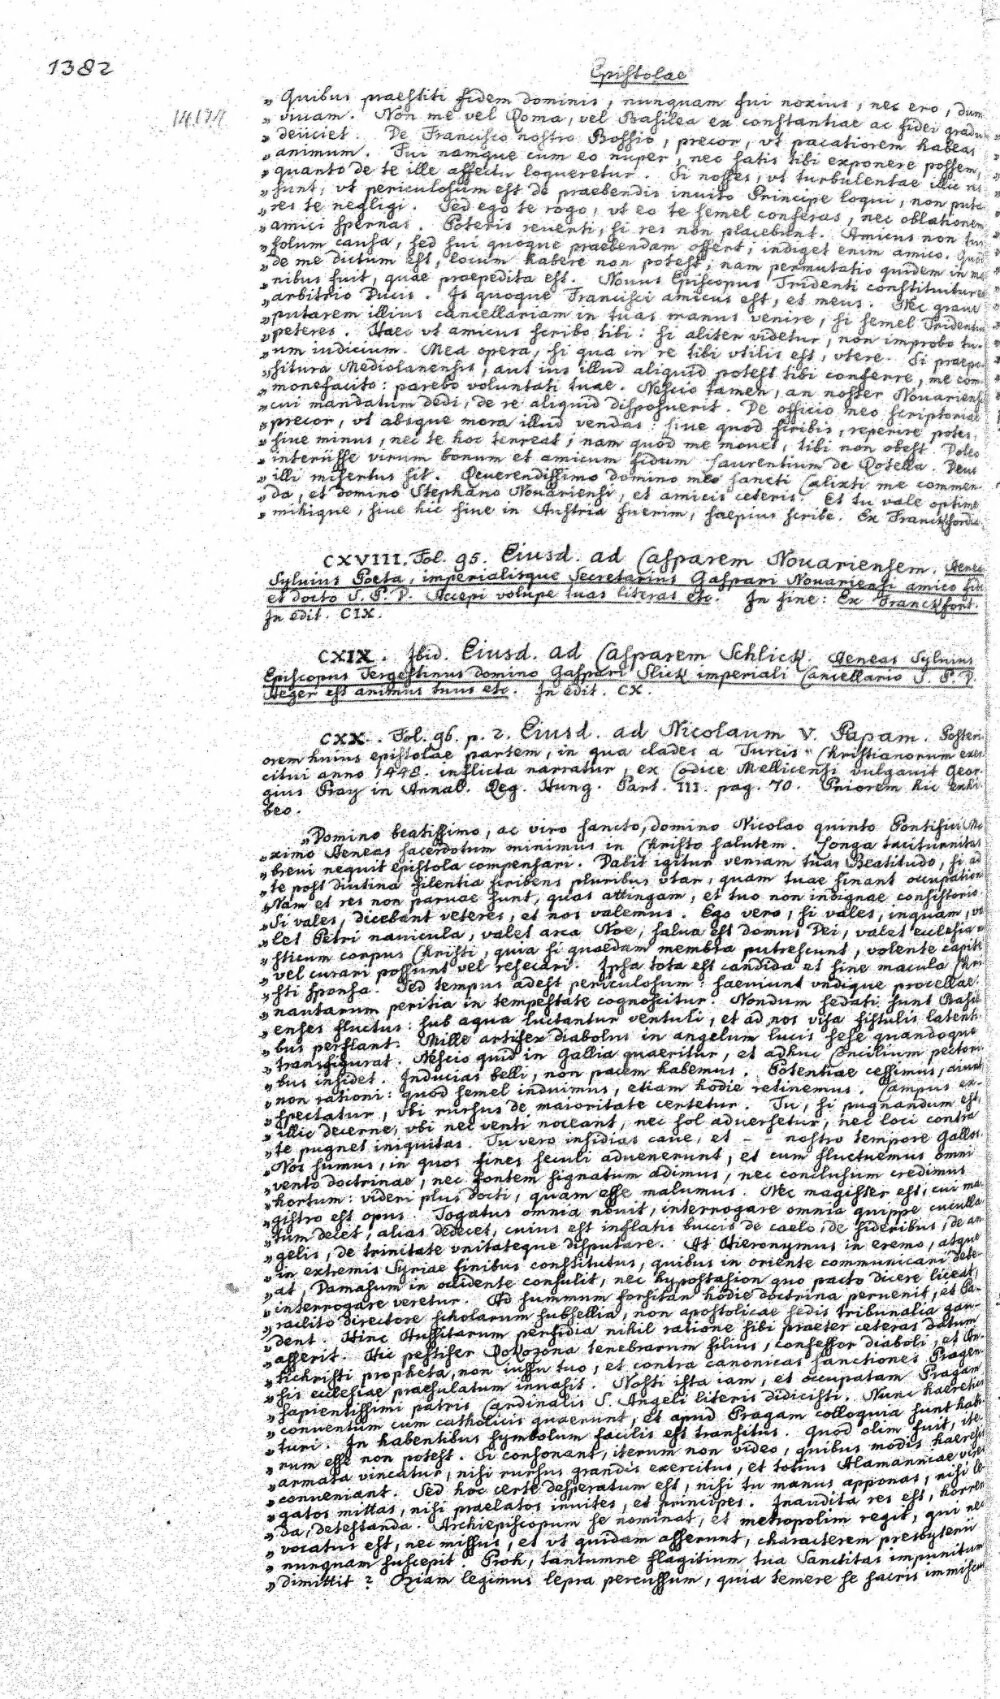 1382
Epistolae
„ Quibus praestiti fidem dominis, nunquam fui noxius, nec ero, dum
„ viuam. Non me vel Roma, vel Basilea ex constantiae ac fidei gradu
„ deiiciet. De Francisco nostro Bossio, precor, vt pacatiorem habeas
„ animum. Fui namque cum eo nuper, nec satis tibi exponere possem,
„ quanto de te ille affectu loqueretur. Si nosses, vt turbulentae illic
„ sunt, vt periculosum est de praebendis inuito Principe loqui, non pute
„ res te negligi. Sed ego te rogo, vt eo te semel conferas, nec oblationem
„ amici spernas. Poteris reuerti, si res non placebunt. Amicus non tui
„ solum causa, sed sui quoque praebendam offert; indiget enim amico. Quod
„ de me dictum est, locum habere non potest; nam permutatio quidem in ma
„ nibus fuit, quae praepedita est. Nouus Episcopus Tridenti constituitur
„ arbitrio Ducis. Is quoque Francisci amicus est, et meus. Nec graue
„ putarem illius cancellariam in tuas manus venire, si semel Tridentum
„ peteres. Haec vt amicus scribo tibi: si aliter videtur, non improbo tu-
„ um iudicium. Mea opera, si qua in re tibi vtilis est, vtere. Si praepo-
„ situra Mediolanensis, aut ius illud aliquid potest tibi conferre, me com
„ monefacito: parebo voluntati tuae. Nescio tamen, an noster Nouariensis
„ cui mandatum dedi, de re aliquid disposuerit. De officio meo scriptoriae
„ precor, vt absque mora illud vendas: siue quod scribis, reperire potes,
„ siue minus, nec te hoc terreat; nam quod me mouet, tibi non obest. Doleo
„ interiisse virum bonum et amicum fidum Laurentium de Rotella. Deus
„ illi misertus sit. Reuerendissimo domino meo sancti Calixti me commen
„ da, et domino Stephano Nouariensi, et amicis ceteris. Et tu vale optime
„ mihique, siue hic siue in Austria fuerim, saepius scribe. Ex Franckfordia
CXVIII. Fol. 95. Eiusd. ad Casparem Nouariensem. Aeneas
Syluius Poeta, imperialisque Secretarius Gaspari Nouariensi amico fido
et docto S. P. D. Accepi volupe tuas literas etc. In fine: Ex Franckfort.
In edit. CIX.
CXIX. Ibid. Eiusd. ad Casparem Schlick. Aeneas Syluius
Episcopus Tergestinus Domino Gaspari Slick imperiali Cancellario S. P. D.
Aeger est animus tuus etc. In edit. CX.
CXX. Fol. 96. p. 2. Eiusd. ad Nicolaum V. Papam. Posteri
orem huius epistolae partem, in qua clades a Turcis Christianorum exer
citui anno 1448. inflicta narratur, ex Codice Mellicensi vulgauit Geor
gius Pray in Annal. Reg. Hung. Part. III. pag. 70. Priorem hic exhi
beo.
„ Domino beatissimo, ac viro sancto, domino Nicolao quinto Pontifici Ma
„ ximo Aeneas sacerdotum minimus in Christo salutem. Longa taciturnitas
„ breui nequit epistola compensari. Dabit igitur veniam tua Beatitudo, si ad
„ te post diutina silentia scribens pluribus vtar, quam tuae sinant occupationes
„ Nam et res non paruae sunt, quas attingam, et tuo non indignae consistorio.
„ Si vales, dicebant veteres, et nos valemus. Ego vero, si vales, inquam, va
„ let Petri nauicula, valet arca Noe, salua est domus Dei, valet ecclesia
„ sticum corpus Christi, quia si quaedam membra putrescunt, volente capite
„ vel curari possunt vel resecari. Ipsa tota est candida et sine macula Chri
„ sti sponsa. Sed tempus adest periculosum: saeuiunt vndique procellae:
„ nautarum peritia in tempestate cognoscitur. Nondum sedati sunt Basili
„ enses fluctus: sub aqua luctantur ventuli, et ad nos vsa fistulis latenti-
„ bus perflant. Mille artifex diabolus in angelum lucis sese quandoque
„ transfigurat. Nescio quid in Gallia quaeritur, et adhuc Concilium pectori
„ bus insidet. Inducias belli, non pacem habemus. Potentiae cessimus, aiunt
„ non rationi: quod semel induimus, etiam hodie retinemus. Campus ex-
„ spectatur, vbi rursus de maioritate certetur. Tu, si pugnandum est,
„ illic decerne, vbi nec venti noceant, nec sol aduersetur, nec loci contra
„ te pugnet iniquitas. Tu vero insidias caue, et - - nostro tempore Gallos.
„ Nos sumus, in quos fines seculi aduenerunt, et cum fluctuemus omni
„ vento doctrinae, nec fontem signatum adimus, nec conclusum credimus
„ hortum: videri plus docti, quam esse malumus. Nec magister est, cui ma
„ gistro est opus. Togatus omnia nouit, interrogare omnia quippe cuculla
„ tum decet, alias dedecet, cuius est inflatis buccis de caelo, de sideribus, de an
„ gelis, de trinitate vnitateque disputare. At Hieronymus in eremo, atque
„ in extremis Syriae finibus constitutus, quibus in oriente communicari debe
„ at, Damasum in occidente consulit, nec hypostasion quo pacto dicere liceat,
„ interrogare veretur. Ad summum forsitan hodie doctrina peruenit, et Pa-
„ raclito directore scholarum subsellia, non apostolicae sedis tribunalia gau-
„ dent. Hinc Hussitarum perfidia nihil ratione sibi praeter ceteras datum
„ asserit. Hic pestifer Rokozona tenebrarum filius, confessor diaboli, et An-
„ tichristi propheta, non iussu tuo, et contra canonicas sanctiones Pragen
„ sis ecclesiae praesulatum inuasit. Nosti ista iam, et occupatam Pragam
„ sapientissimi patris Cardinalis S. Angeli literis didicisti. Nunc haeretici
„ conuentum cum catholicis quaerunt, et apud Pragam colloquia sunt habi
„ turi. In habentibus symbolum facilis est transitus. Quod olim fuit, ite-
„ rum esse non potest. Si consonant, iterum non video, quibus modis haeresis
„ armata vincatur, nisi rursus grandis exercitus, et totius Alamanniae vires
„ conueniant. Sed hoc certe desperatum est, nisi tu manus apponas, nisi le
„ gatos mittas, nisi praelatos inuites, et principes. Inaudita res est, horren
„ da, detestanda. Archiepiscopum se nominat, et metropolim regit, qui nec
„ vocatus est, nec missus, et vt quidam asserunt, characterem presbyterii
„ nunquam suscepit. Proh, tantumne flagitium tua Sanctitas impunitum
„ dimittit? Oziam legimus lepra percussum, quia temere se sacris immiscu